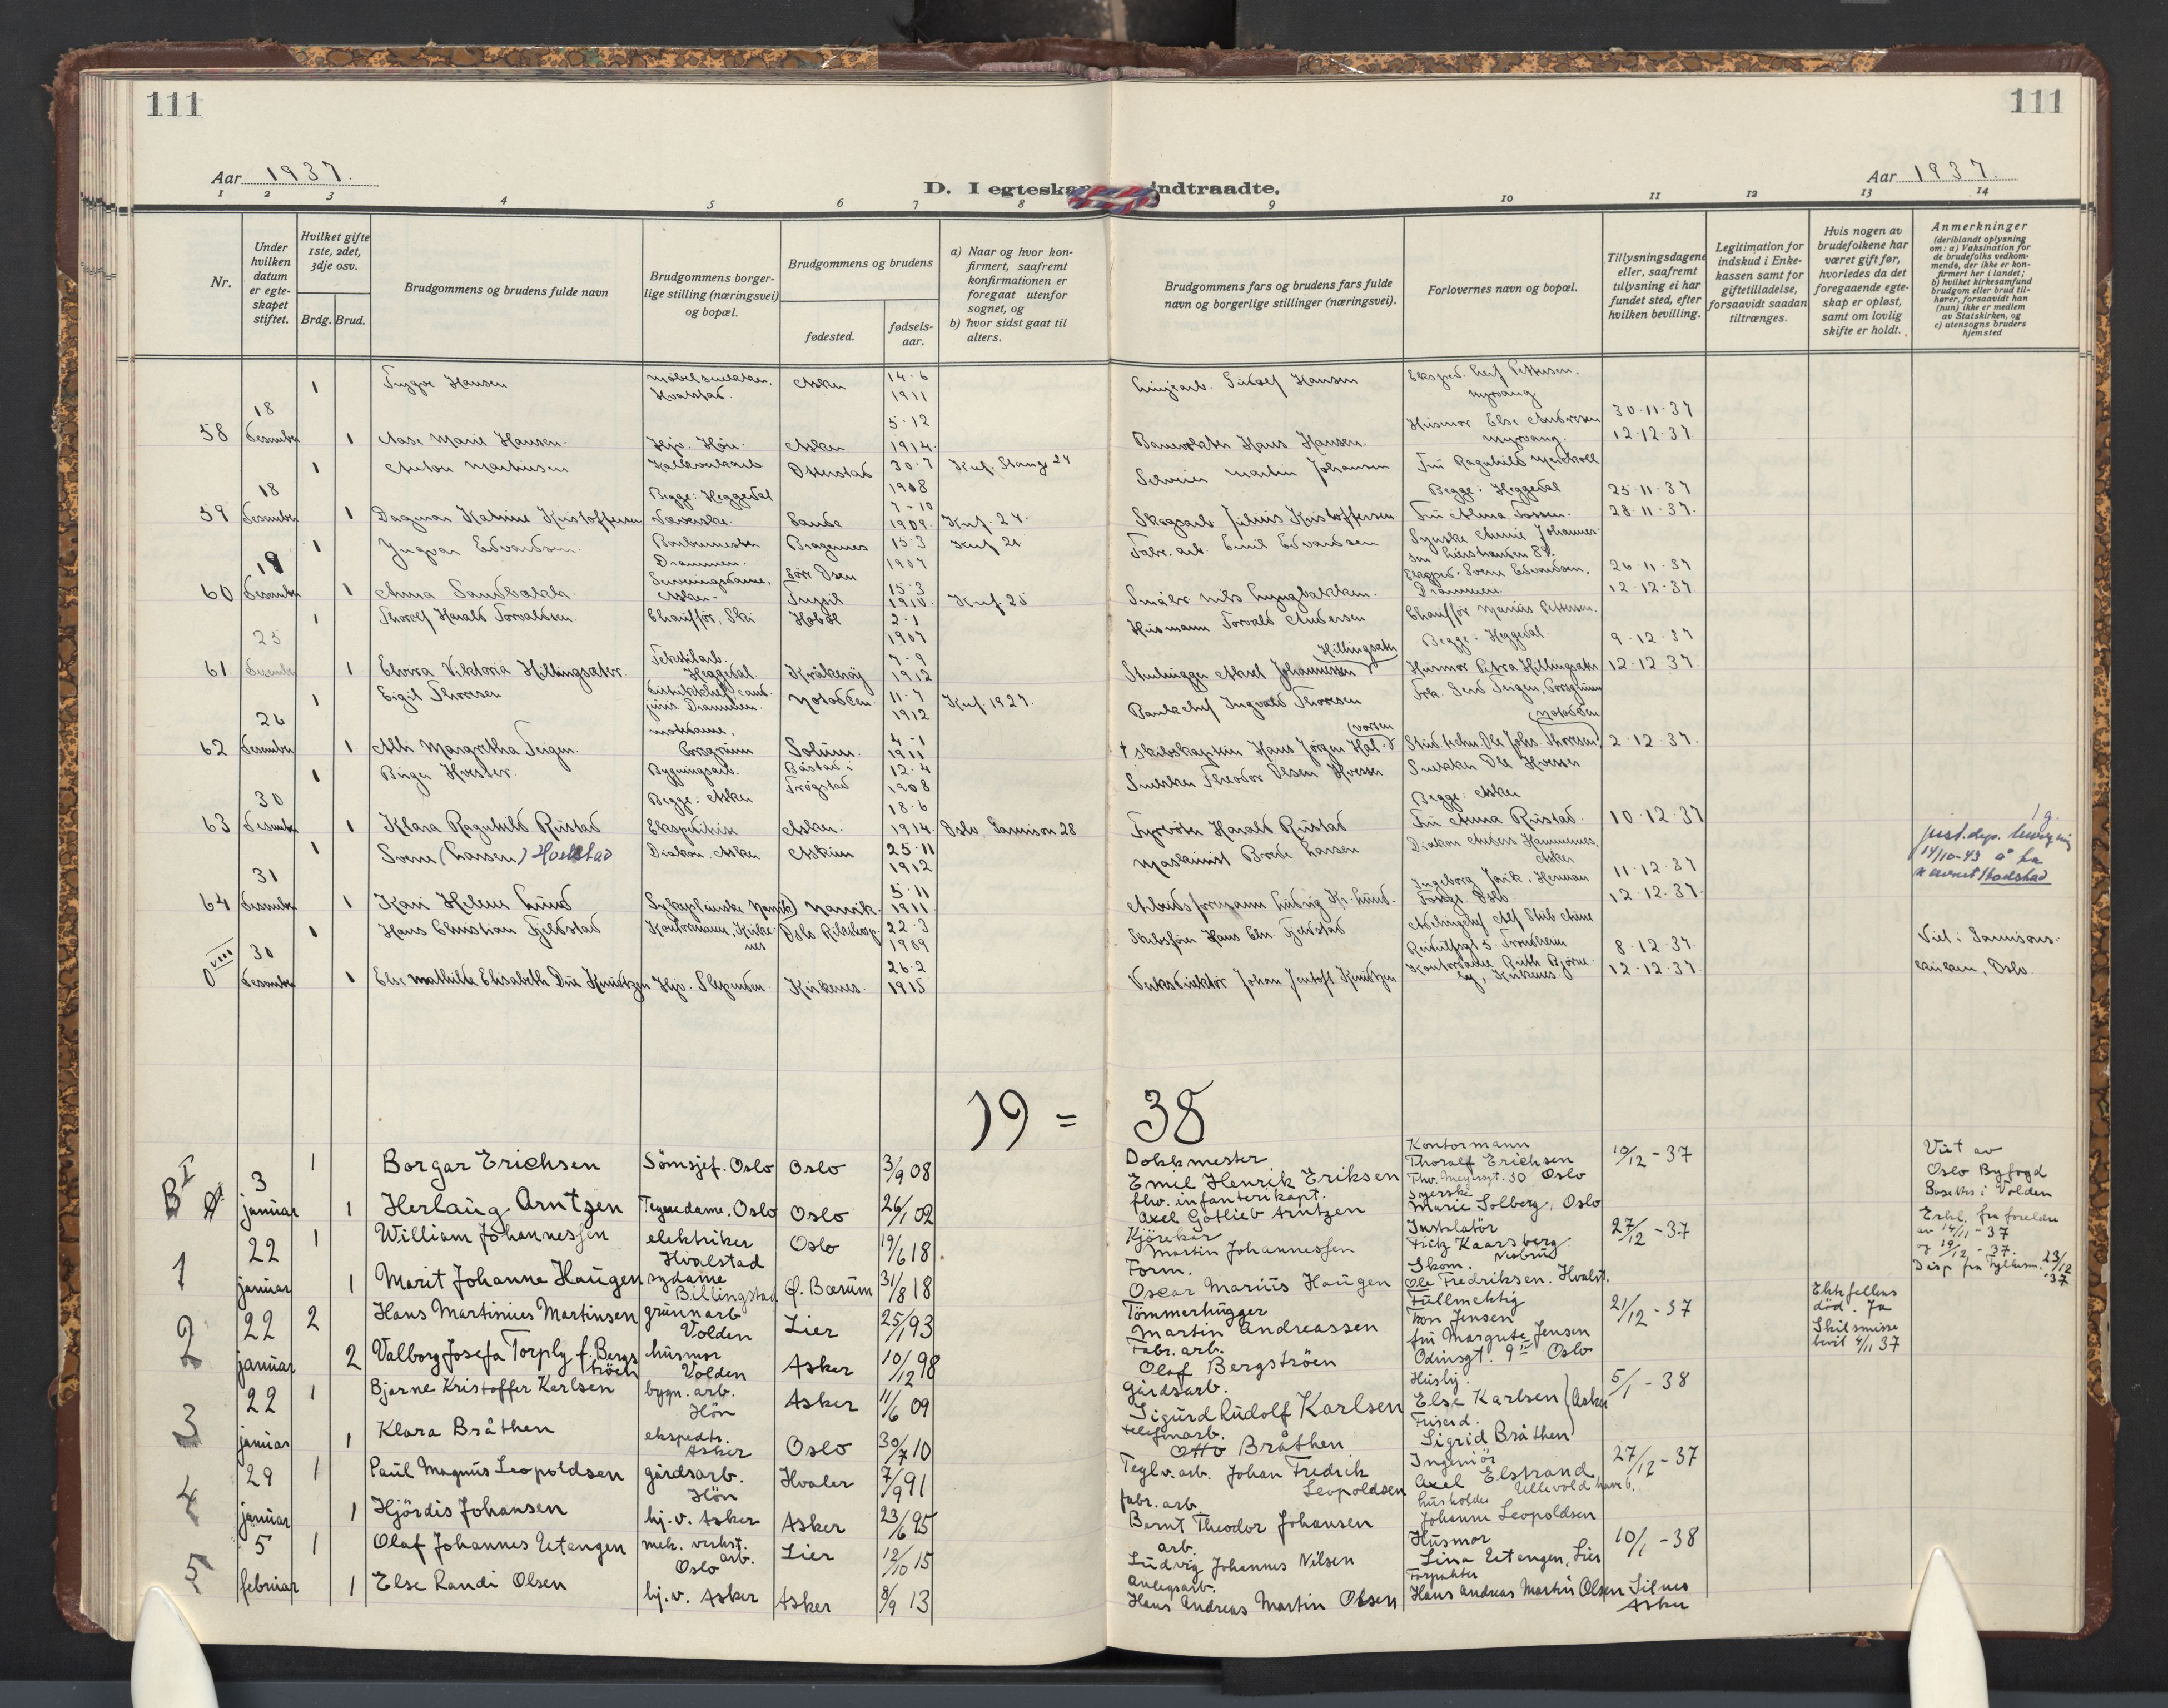 111
111
Aar 1937.
Aar 1937.
D. I egteska
indtraadte.
1 2 3 4 5 6 7 8 9 10 11 12 13 14
Nr.
Under hvilken datum er egte-skapet stiftet.
Hvilket gifte 1ste, 2det, 3dje osv.
Brdg. Brud.
Brudgommens og brudens fulde navn
Brudgommens borger-lige stilling (næringsvei) og bopæl.
Brudgommens og brudens
fødested.
fødsels-aar.
a) Naar og hvor kon-firmert, saafremt konfirmationen er foregaat utenfor sognet, og
b) hvor sidst gaat til alters.
Brudgommens fars og brudens fars fulde navn og borgerlige stillinger (næringsvei).
Forlovernes navn og bopæl.
Tillysningsdagene eller, saafremt tillysning ei har fundet sted, efter hvilken bevilling.
Legitimation for indskud i Enke-kassen samt for giftetilladelse, forsaavidt saadan tiltrænges.
Hvis nogen av brudefolkene har været gift før, hvorledes da det foregaaende egte-skap er opløst, samt om lovlig skifte er holdt.
Anmerkninger
(deriblandt oplysning om: a) Vaksination for de brudefolks vedkom-mende, der ikke er kon-firmert her i landet; b) hvilket kirkesamfund brudgom eller brud til-hører, forsaavidt han (hun) ikke er medlem av Statskirken, og c) utensogns bruders hjemsted
1 Trygve Hansen Møbelsnekker, Hvalstad. Asker 14-6 1911 Linjearb. Hansen Eksped. Leif Pettersen, Myrvang
58 18 desember 1 Aase Marie Hansen. Hjv. Høn. Asker 5-12 1914. Banevokter Hans Hansen. Husmor Else Andersen Myrvang. 30-11-37 12-12-37.
1 Anton Martinsen Ottestad 30-7 1908 Knf. Stange 24 Martin Johansen Fru Ragnhild
59 18 desember 1 Dagmar Katrine Kristoffersen Begge: Heggedal Væverske. Sande 7-10 1909. Knf. 24. Skogsarb. Julius Kristoffersen Begge: Heggedal Fru Alma Fossen. 25-11-37 28-11-37.
1 Yngvar Edvardsen. Drammen. Bragernes 15-3 1907 Knf. 21 Fabr. arb. Emil Edvardsen Syerske
60 19 desember 1 Anna Sandbakk. Serveringsdame, Asker. Trysil 15-3 1910. Knf. 25 Eksped. Svein Edvardsen, Drammen. 26-11-37 12-12-37.
1 Thorolf Harald Torvaldsen. Chauffør, Ski Hobøl 2-1 1907 Husmann Torvald Andersen Chauffør Marius Pettersen.
61 25 desember 1 Elvira Viktoria Hillingsæter. Tekstilarb. Heggedal. Kråkerøy 7-9 1912 Stenhugger Aksel Johannessen Hillingsæter Begge: Heggedal Husmor Petra Hillingsæter 9-12-37 12-12-37.
1 Eigil Thoresen cand. juris Drammen. Notodden 11-7 1912 Knf. 1927. Banksjef Ingvald Thoresen Frk. Gerd Teigen, Porsgrunn
62 26 desember 1 Alli Margretha Teigen. Motedame, Porsgrunn Solum. 4-1 1911 † Skibskaptein Hans Jørgen Hal- vorsen Stud. techn. Ole Johs. Thoresen, Notodden 2-12-37.
1 Birger Hvester. Bygningsarb. Båstad i Trøgstad 12-4 1908 Snekker Theodor Olsen Hvester Snekker Ole Hvester
63 30 desember 1 Klara Ragnhild Rustad Begge: Asker Ekspeditrise Asker. 18-6 1914. Oslo, Garnison 28 Fyrbøter Harald Rustad Begge: Asker Fru Anna Rustad. 10-12-37
1 Svenn (Larsen) Hoelstad Diakon, Asker Askim 25-11 1912 Maskinist Larsen Diakon Anders Hammenes, Asker just.dep. 14/10-43 å ta navnet Hoelstad
64 31 desember 1 Kari Helene Lund Sykepleierske Narvik Narvik. 5-11 1911. Arbeidsformann Ludvig Kr. Lund. Oslo 11-12-37 12-12-37.
1 Hans Christian Fjeldstad Kontormann, Kirkenes Oslo 22-3 1909 Skibsfører Hans Chr. Fjeldstad Trondheim
0 VIII 30 desember 1 Else Mathilde Elisabeth Due Knudtzen Hjv. Slependen. Kirkenes. 26-2 1915 Verksdirektør Johan Knudtzen Kontordame Ruth Bjørne, Kirkenes. 8-12-37. 12-12-37. Viet i Garnisons-kirken, Oslo.
19 = 38
B I 3 januar 1 Borgar Erichsen Sømsjef. Oslo Oslo 3/9 08 Dokkmester Emil Henrik Eriksen Kontormann Thoralf Erichsen Thv. Meyersgt. 50 Oslo 19/12-37 Viet av Oslo Byfogd Bosettes i Volden
1 Herlaug Arntzen Tegnedame. Oslo Oslo 26/1 02 fhv. infanterikapt. Axel Gotlieb Arntzen Syerske Marie Solberg, Oslo
1 22 januar 1 William Johannessen elektriker Hvalstad Oslo 19/6 18 Kjørekar Martin Johannessen Instalatør Fritz Kaarsberg Nesbru 27/12-37 Erkl. fra foreldre av 14/11-37 og 19/12-37. Disp fra Fylkesm. 23/12 37
1 Marit Johanne Haugen sydame Billingstad Ø. Bærum 31/8 18 Form. Oscar Marius Haugen Skom. Ole Fredriksen. Hvalst.
2 22 januar 2 Hans Martinius Martinsen grunnarb Volden Lier 25/1 93 Tømmerhugger Martin Andreassen Fullmektig Tron Jensen 21/12-37 Ektefellens død. Ja Skilsmisse bevil 4/11 37
2 Valborg Josefa Torply f. Bergs trøen husmor Volden Asker 10/12 98 Fabr. arb. Olaf Bergstrøen fru Margrete Jensen Odinsgt. 9 IV Oslo
3 22 januar 1 Bjarne Kristoffer Karlsen bygn. arb. Høn Asker 11/6 09 Gårdsarb. Sigurd Rudolf Karlsen Husbj. Else Karlsen Asker 5/1-38
1 Klara Bråthen ekspedtr. Asker Oslo 30/7 10 telefonarb. Otto Bråthen Friserd. Sigrid Bråthen
4 29 januar 1 Paul Magnus Leopoldsen gårdsarb. Høn Hvaler 7/9 91 Teglv. arb. Johan Fredrik Leopoldsen Ingeniør Axel Elstrand Ullevold haveb. 27/12-37
1 Hjördis Johansen hj.v. Asker Asker 23/6 95 fabr. arb. Bernt Theodor Johansen husholder Johanne Leopoldsen
5 5 februar 1 Olaf Johannes Utengen mek. verkst. arb. Oslo Lier 12/10 15 arb. Ludvig Johannes Nilsen Husmor Lina Utengen, Lier 10/1-38
1 Else Randi Olsen hj.v. Asker Asker 8/9 13 Anlegsarb. Hans Andreas Martin Olsen Forpakter Hans Andreas Martin Olsen Asker